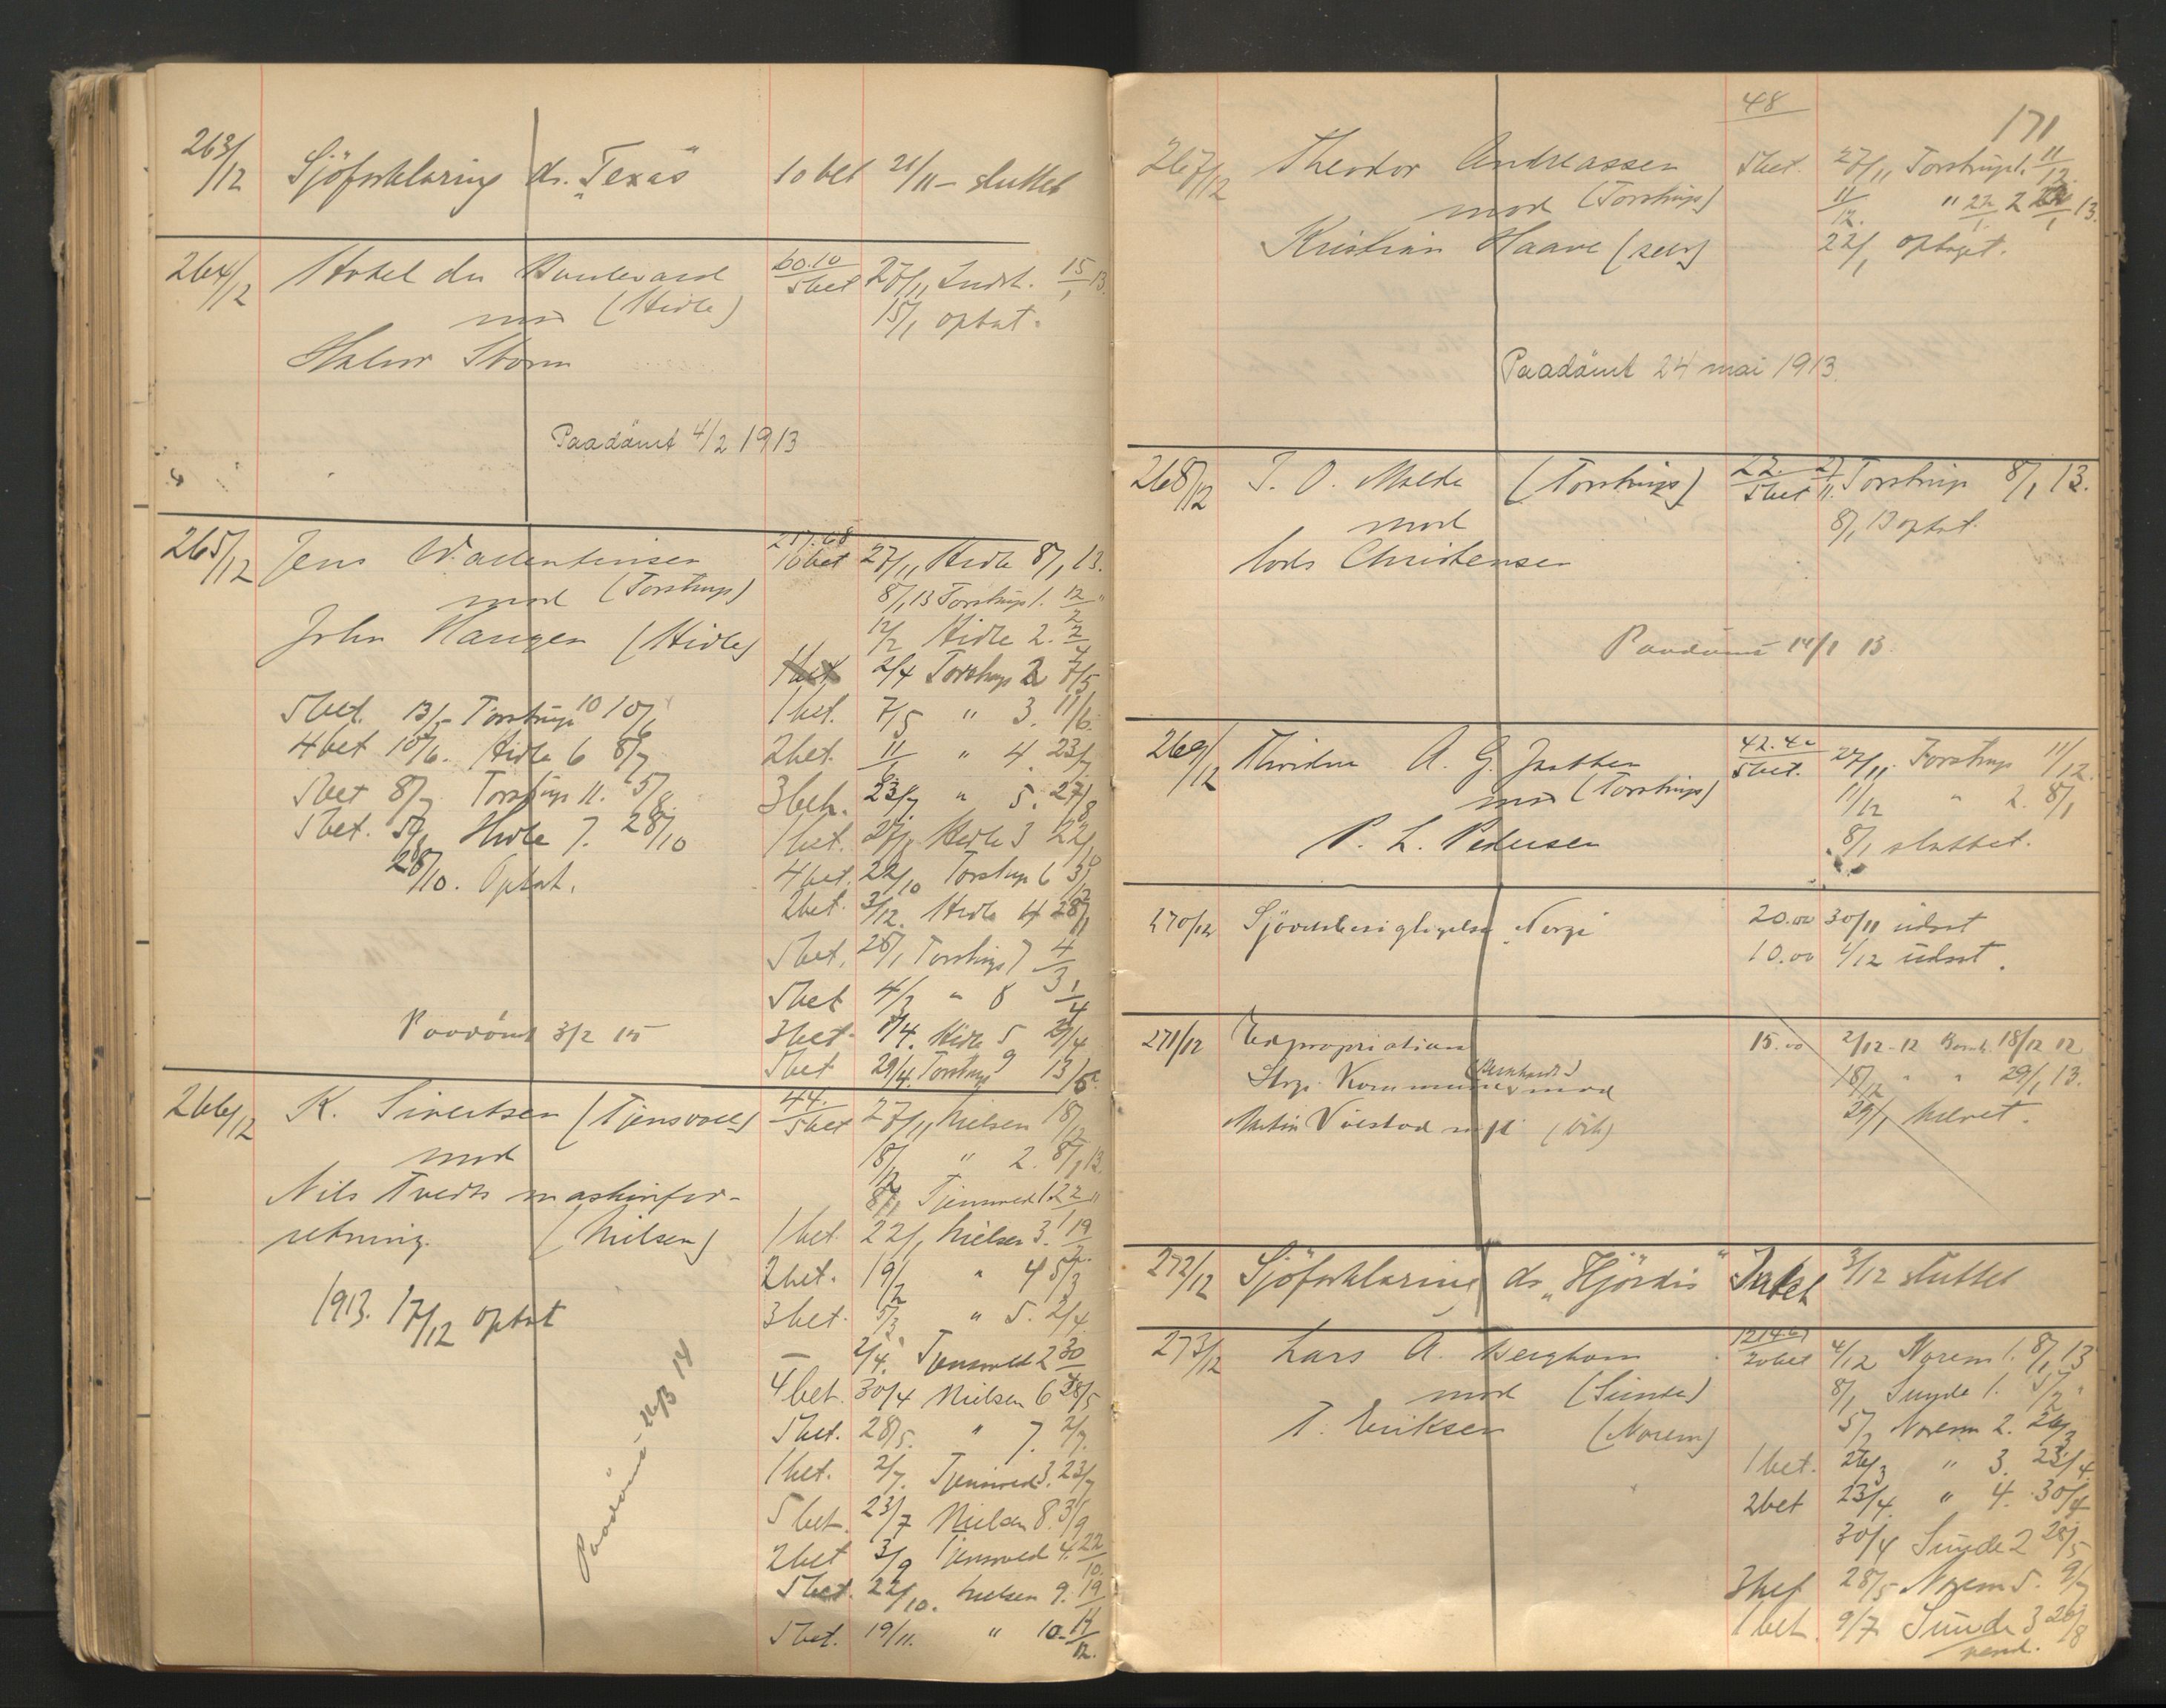 263/12 Sjöforklaring ds. "Texas" 10 bet 21/11 - sluttet
264/12 Hotel du Boulevard 60.10 5 bet 27/11 Indst. 15/1 13.
mod (Hidle) 15/1 optat.
Halvor Storm
Paadömt 4/2 1913
265/12 Jens Wallentinsen 10 bet 27/11 Hidle 8/1 13.
mod (Torstrup) 8/1 13 Torstrup 1. 12/2 "
John Haugen (Hidle) 12/2 Hidle 2. 2/4
1 bet 2/4 Torstrup 2 7/5
1 bet. 7/5 " 3. 11/6
2 bet. 11/6 " 4. 23/7
3 bet. 23/7 " 5. 27/8
1 bet. 27/8 Hidle 3 22/10
4 bet. 22/10 Torstrup 6 3/12
2 bet. 3/12. Hidle 4 28/1
5 bet. 28/1 Torstrup 7 4/3
5 bet 4/3 " 8 1/4
3 bet. 1/4. Hidle 5 29/4
5 bet 29/4. Torstrup 9 13/5
5 bet. 13/5 Torstrup 10 10/6
4 bet 10/6. Hidle 6 8/7
5 bet 8/7 Torstrup 11. 5/8
5 bet. 5/8 Hidle 7. 28/10
28/10. Optat.
Paadömt 3/2 15
266/12 K. Sivertsen (Tjensvold) 44. 5 bet 27/11 Nielsen 18/12
mod 18/12 " 2. 8/1 13.
Nils Tvedts maskinfor- 8/1 Tjensvold 1. 22/1 "
retning. (Nielsen) 1 bet 22/1 Nielsen 3. 19/2
2 bet. 19/2 " 4 5/3
3 bet. 5/3 " 5. 2/4
– 2/4. Tjensvold 2 30/4
4 bet. 30/4 Nielsen 6 28/5
5 bet. 28/5. " 7. 2/7.
1 bet. 2/7. Tjensvold 3. 23/7
5 bet. 23/7 Nielsen 8. 3/9
2 bet 3/9 Tjensvold 4. 22/10.
5 bet. 22/10. Nielsen 9. 19/11
5 bet. 19/11. " 10. 17/12.
1913. 17/12 optat
Paadömt 26/3 14
48
171
267/12 Theodor Andreassen 5 bet. 27/11 Torstrup 1. 11/12.
mod (Torstrup) 11/12. " 2 22/1 13.
Kristian Haave (selv) 22/1 optaget.
Paadömt 24 mai 1913.
268/12 T. O. Molde (Torstrup) 22. 5 bet 27/11. Torstrup 8/1 13.
mod 8/1 13 optat.
Lods Christensen
Paadömt 14/1 13.
269/12 A. G. 42.40 5 bet. 27/11. Torstrup 11/12.
mod (Torstrup) 11/12 " 2. 8/1
P. L. Pedersen 8/1 sluttet.
270/12 Norge 20.00 30/11 udset
10.00 4/12 udset.
271/12 Expropriation 15.00 2/12-12 Bernh. 18/12 12
Kommune (Bernhardt) mod 18/12 " " 29/1 13.
29/1 hævet.
272/12 Sjöforklaring ds. "Hjördis" 3/12 sluttet
273/12 Lars A. Berghom 1214.61 20 bet 4/12 Norem 1. 8/1 13
mod (Sunde) 8/1 Sunde 1. 5/2 "
T. Eriksen (Norem) 5/2 Norem 2. 26/3
1 bet. 26/3 " 3. 23/4.
2 bet 23/4. " 4. 30/4
30/4 Sunde 2 28/5
3 bet 28/5 Norem 5. 9/7
1 bet. 9/7 Sunde 3 20/8
vend.